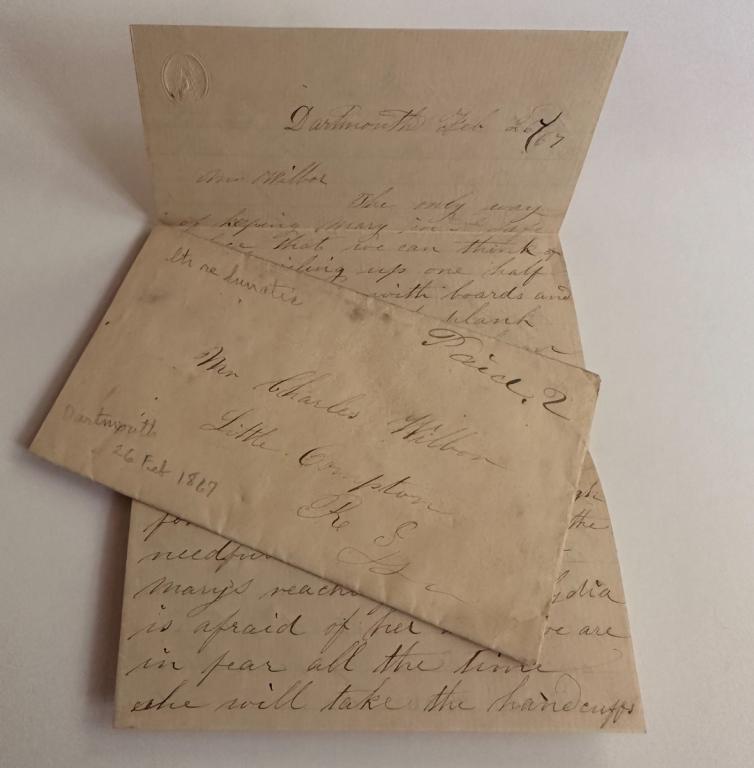 Dartmouth Feb 26/67
Mr Wilbor
The only way
of keping Mary in a safe
place that we can think of
is ceiling up one half
with boards and
plank
ltr re lunatic
Paid. 2
Mr Charles Wilbor
Little Compton
R I
Dartmouth
26 Feb 1867
the
needful
Marys reach Lydia
is afraid of her we are
in fear all the time
she will take the handcuffs